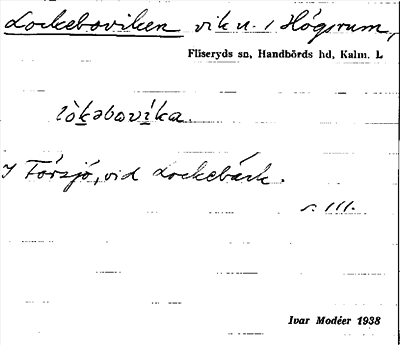 Lockeboviken vik u. i Högsrum,
Fliseryds sn, Handbörds hd, Kalm. L
lòkabovíka.
I Försjö, vid Lockebäck.
s. 111.
Ivar Modéer 1938